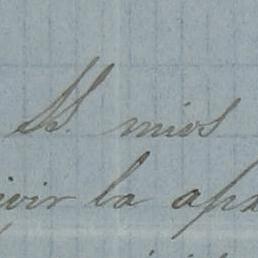 SS. mios
ivir la apa